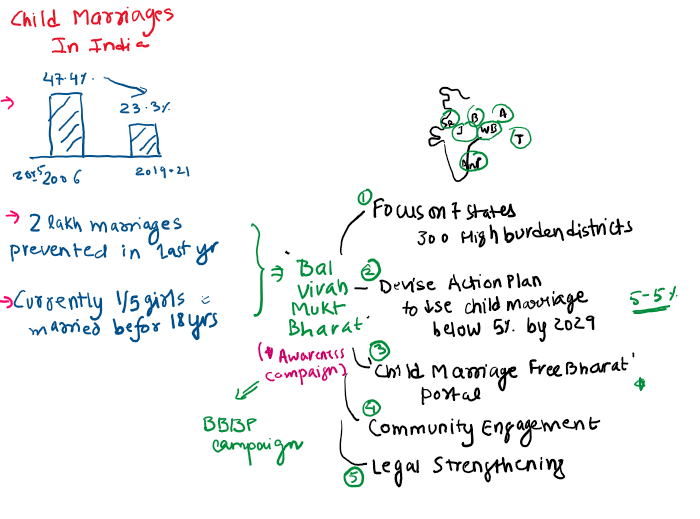 Child Marriages
In India
47.4%
23.3%
2005
2006
2019-21
2 lakh marriages
prevented in last yr
Currently 1/5 girls
married befor 18yrs
Bal
Vivah
Mukt
Bharat
(Awareness
campaign)
BBBP
campaign
J
B
A
WB
T
AnP
① Focus on 7 states
300 High burden districts
② Devise Action Plan
to ↓se child marriage
below 5% by 2029
5-5%
③ 'Child Marriage Free Bharat'
portal
④ Community Engagement
⑤ Legal Strengthening